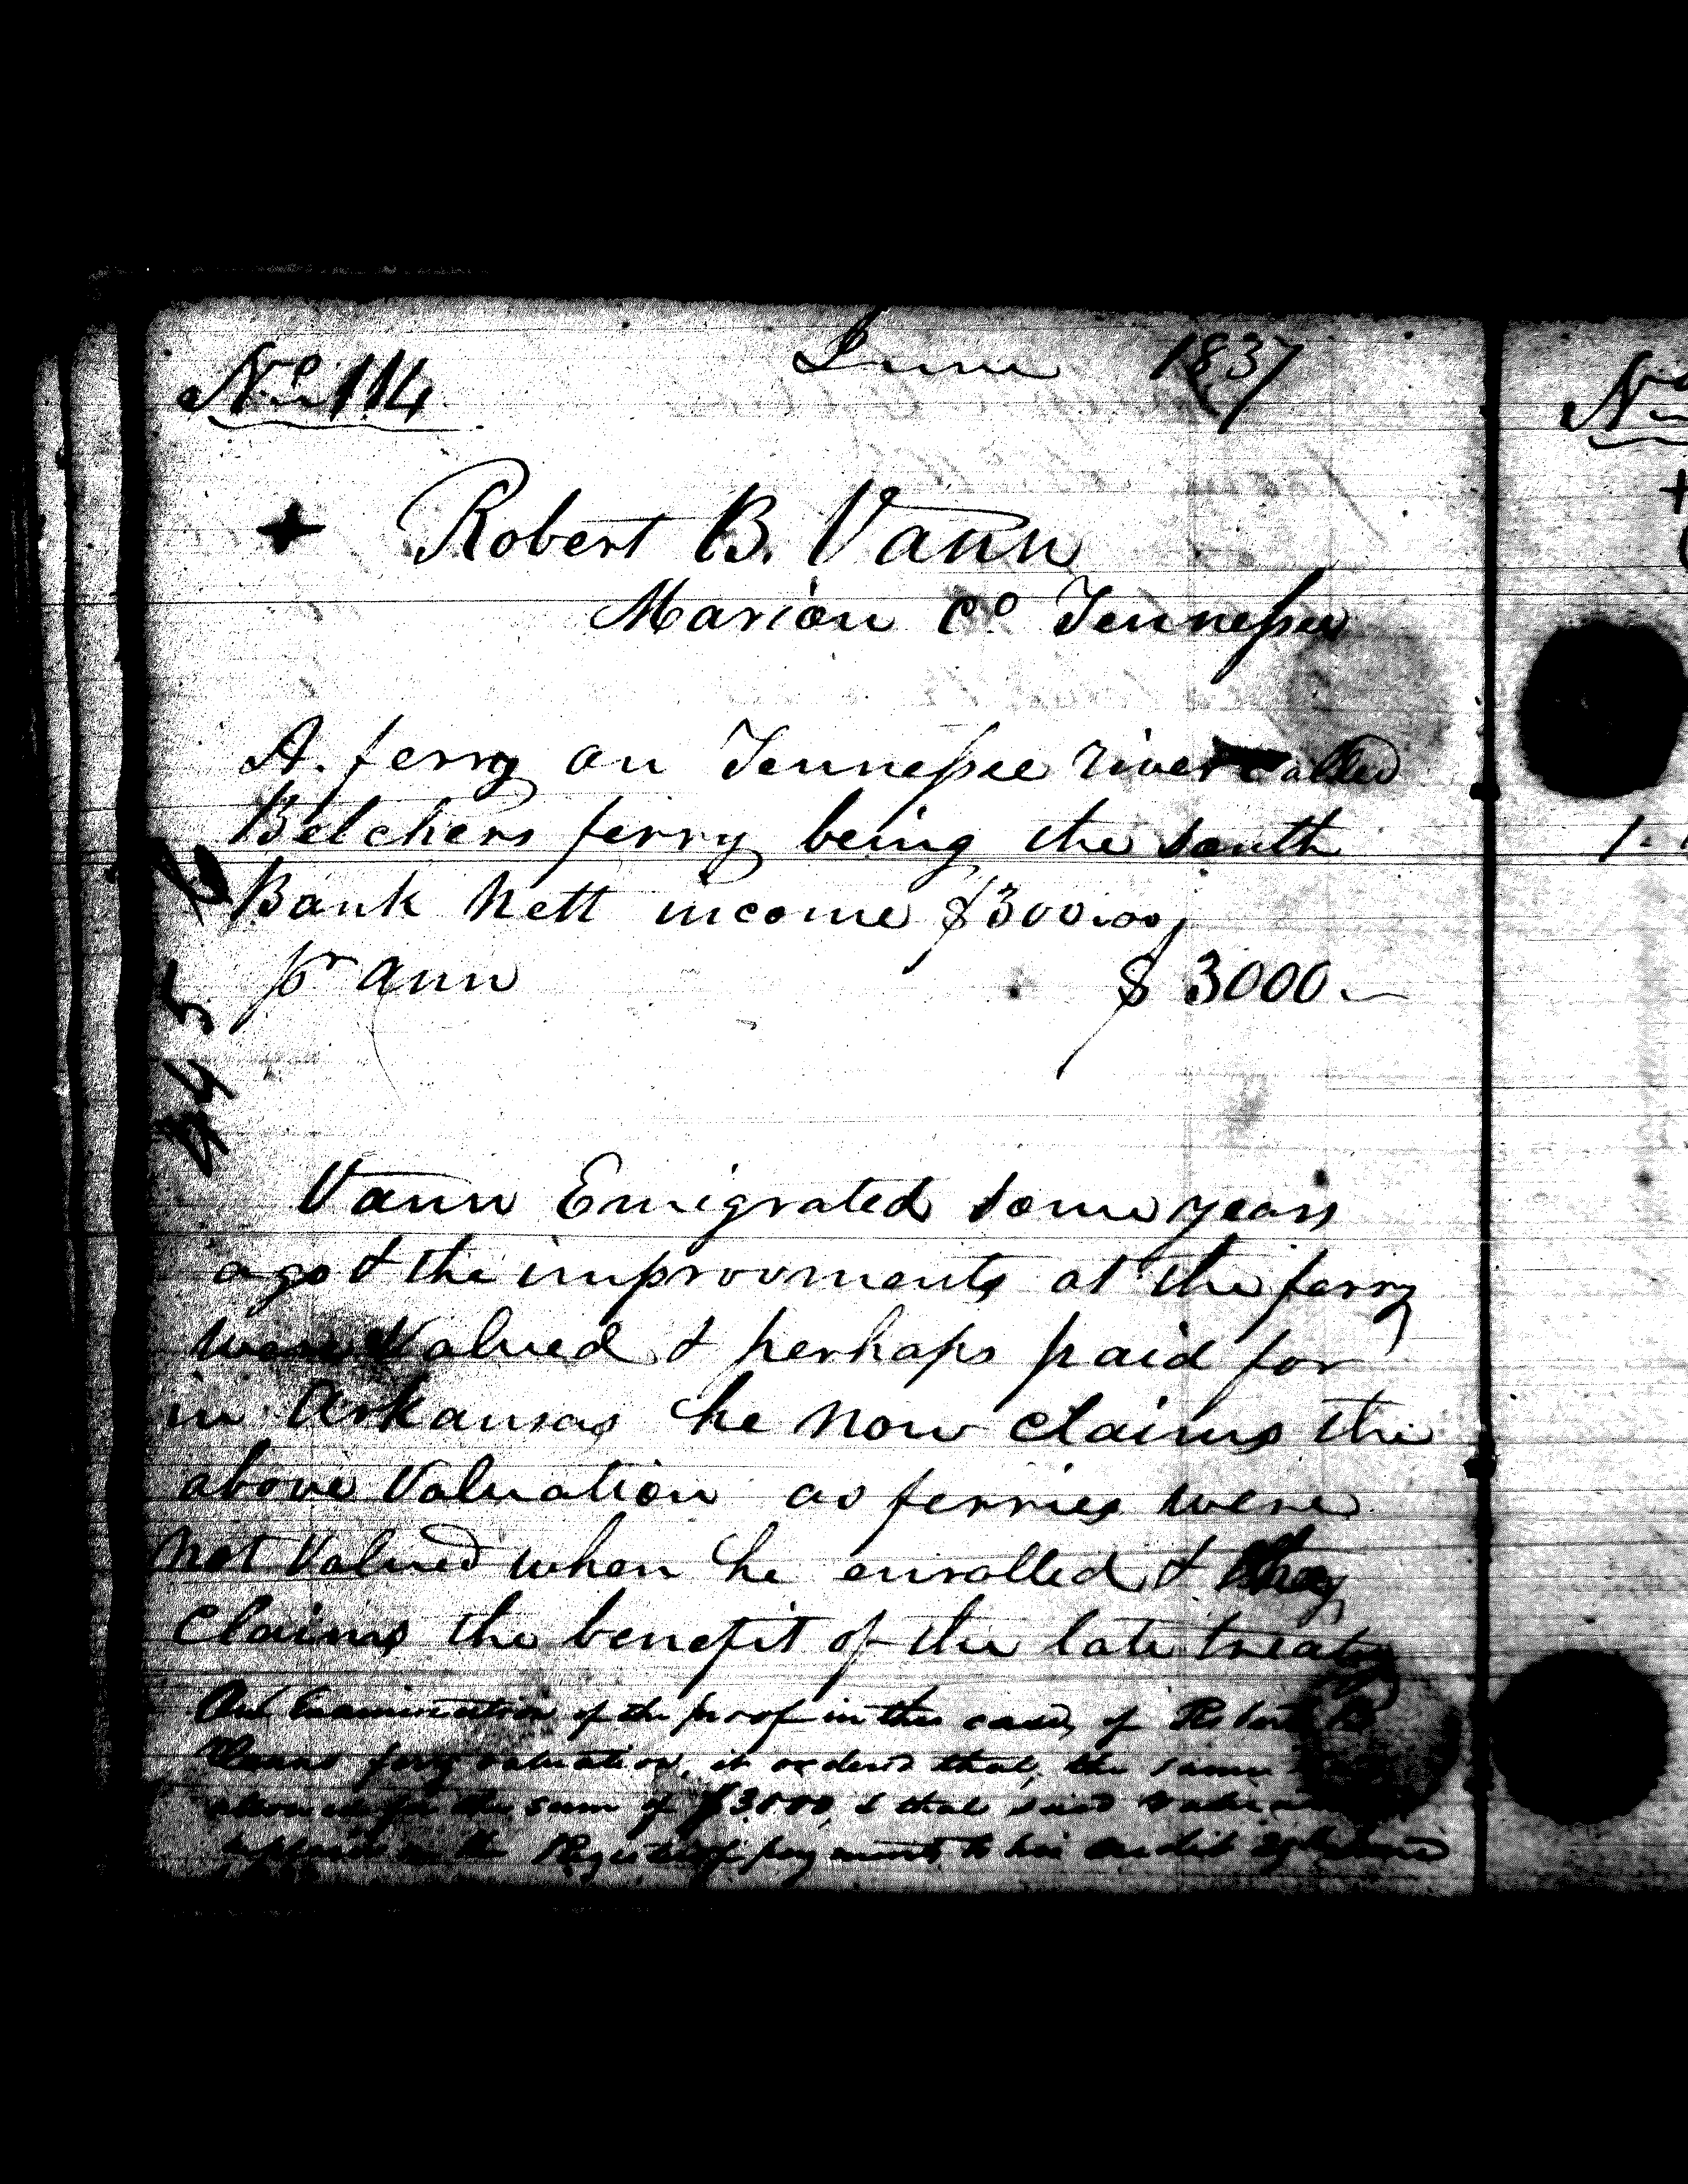 No 114
June 1837
+ Robert B. Vann
Marion Co Tennessee
A. ferry on Tennessee river called
Belchers ferry being the south
Bank Nett income $300.00
pr ann $ 3000.
Vann Emigrated some years
ago & the improvments at the ferry
were Valued & perhaps paid for
in Arkansas he now claims the
above Valuation as ferries were
not Valued when he enrolled &
Claims the benefit of the late treaty
Examination of the proof in this case, of Robert B
Vanns ferry valuation, it ordered that, the same
for the sum of $3000, & that said
the Register of payments to his credit